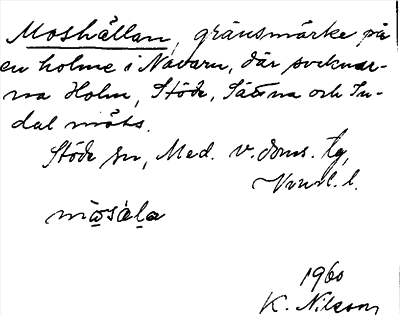 Moshällan, gränsmärke på
en holme i Navarn, där socknar-
na Holm, Stöde, Sättna och In-
dal möts.
Stöde sn, Med. v. doms. tg,
l.
1960
K. Nilsson